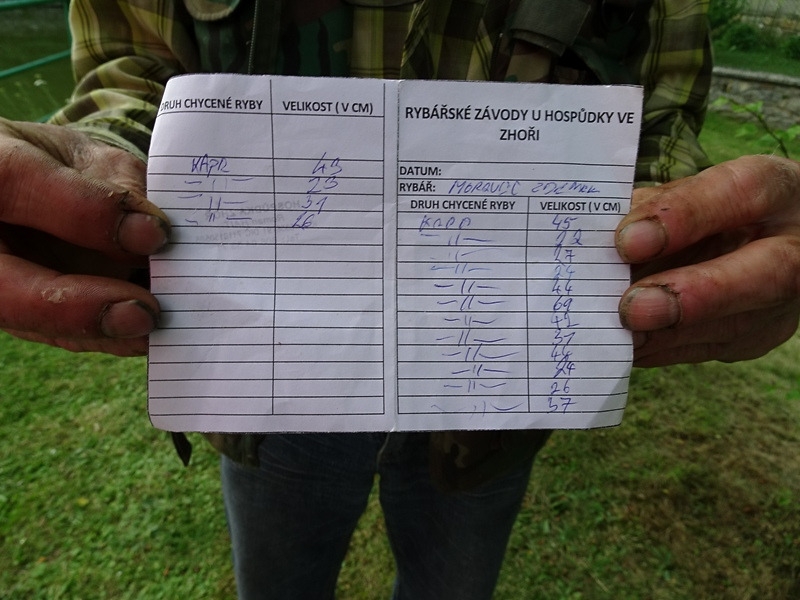 DRUH CHYCENÉ RYBY VELIKOST ( V CM)
KAPR 43
—"— 23
—"— 31
—"— 26
RYBÁŘSKÉ ZÁVODY U HOSPŮDKY VE
ZHOŘI
DATUM:
RYBÁŘ: MORAVEC ZDENEK
DRUH CHYCENÉ RYBY VELIKOST ( V CM)
KAPR 45
—"— 22
27
—"— 24
—"— 44
—"— 69
—"— 42
—"— 37
—"— 44
—"— 24
—"— 26
—"— 37